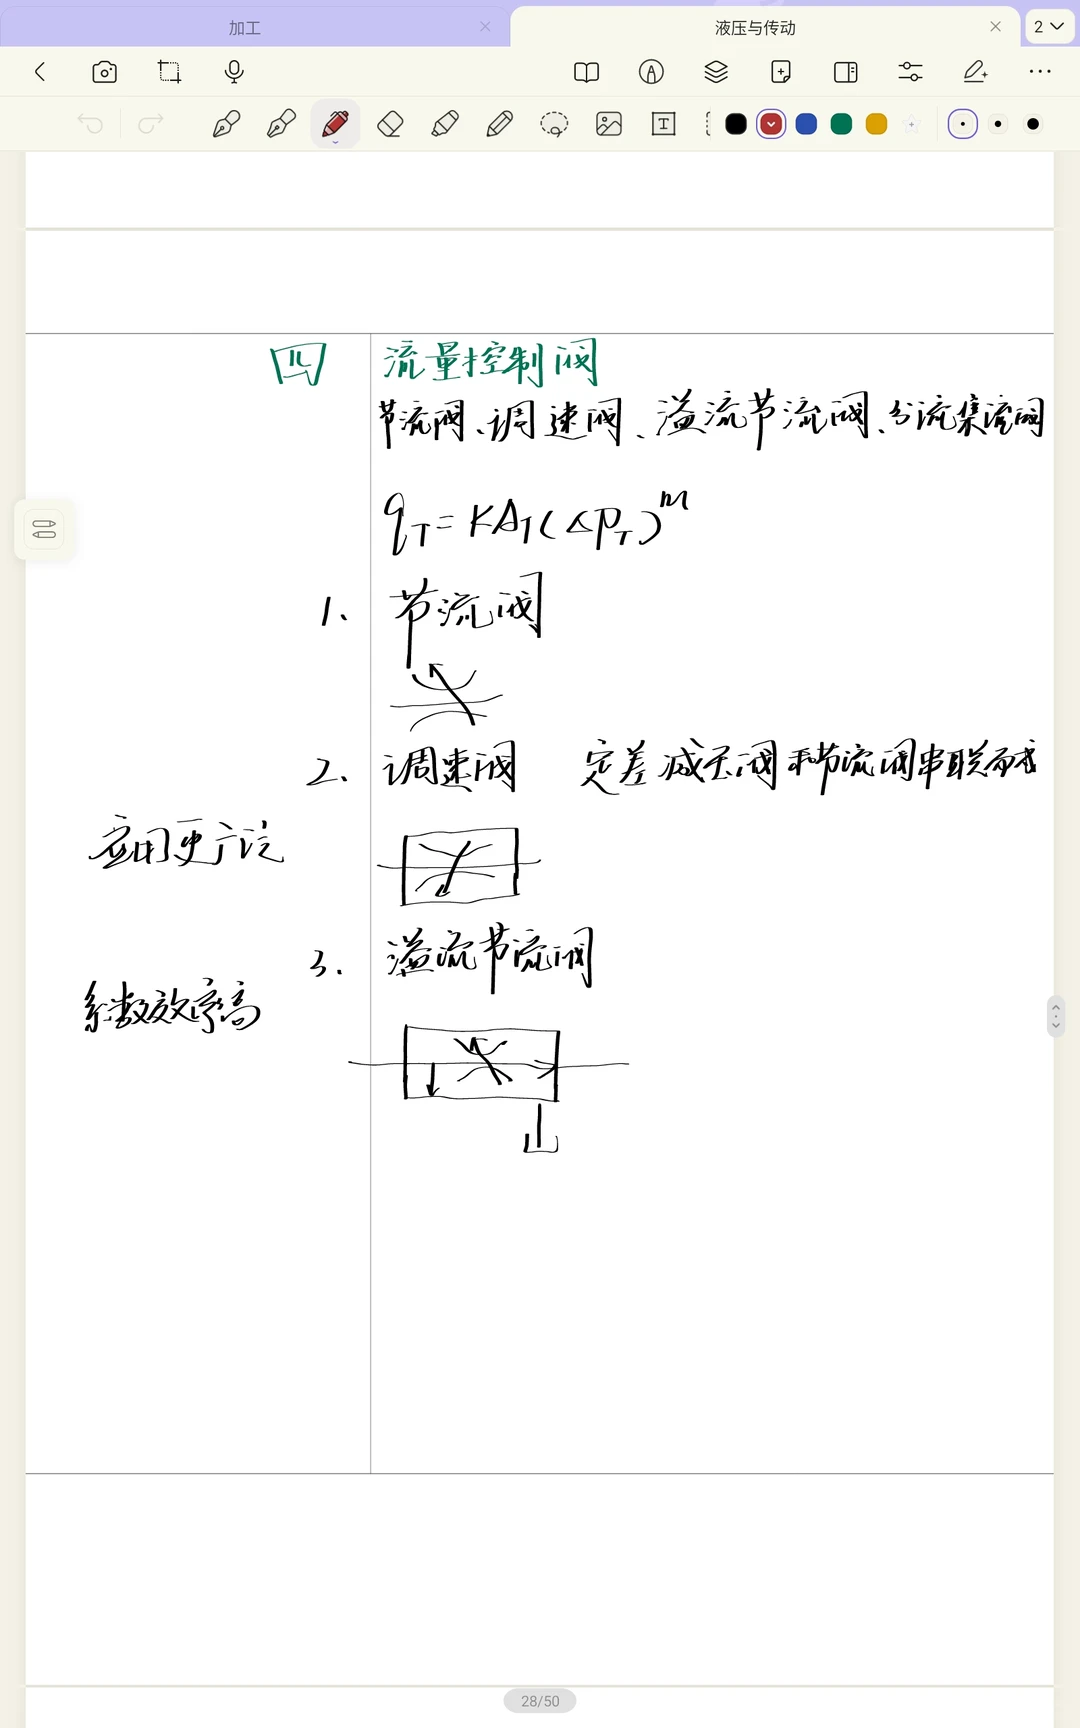 加工
液压与传动
2
四 流量控制阀
节流阀、调速阀、溢流节流阀、分流集流阀
q_T=KA_T(Δp_T)^m
1、 节流阀
2、 调速阀 定差减压阀和节流阀串联而成
应用更广泛
3、 溢流节流阀
系数效率高
28/50